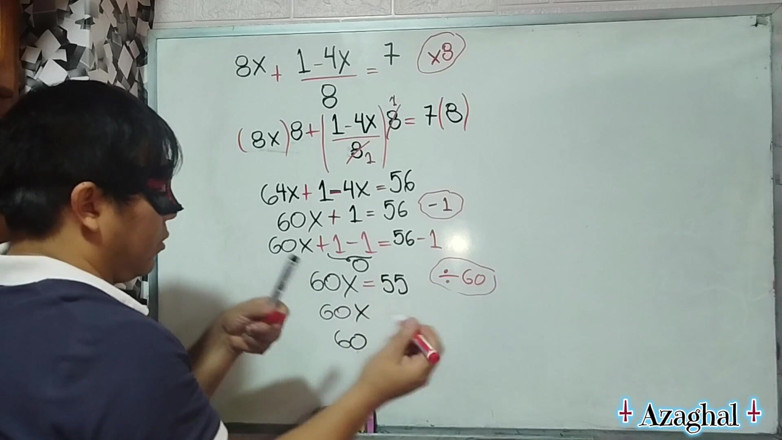 8x + (1-4x)/8 = 7 ×8
(8x)8 + ((1-4x)/8 1) 8 1 = 7(8)
64x + 1-4x = 56
60x + 1 = 56 -1
60x + 1 - 1 = 56 - 1
0
60x = 55 ÷60
60x
60
Azaghal